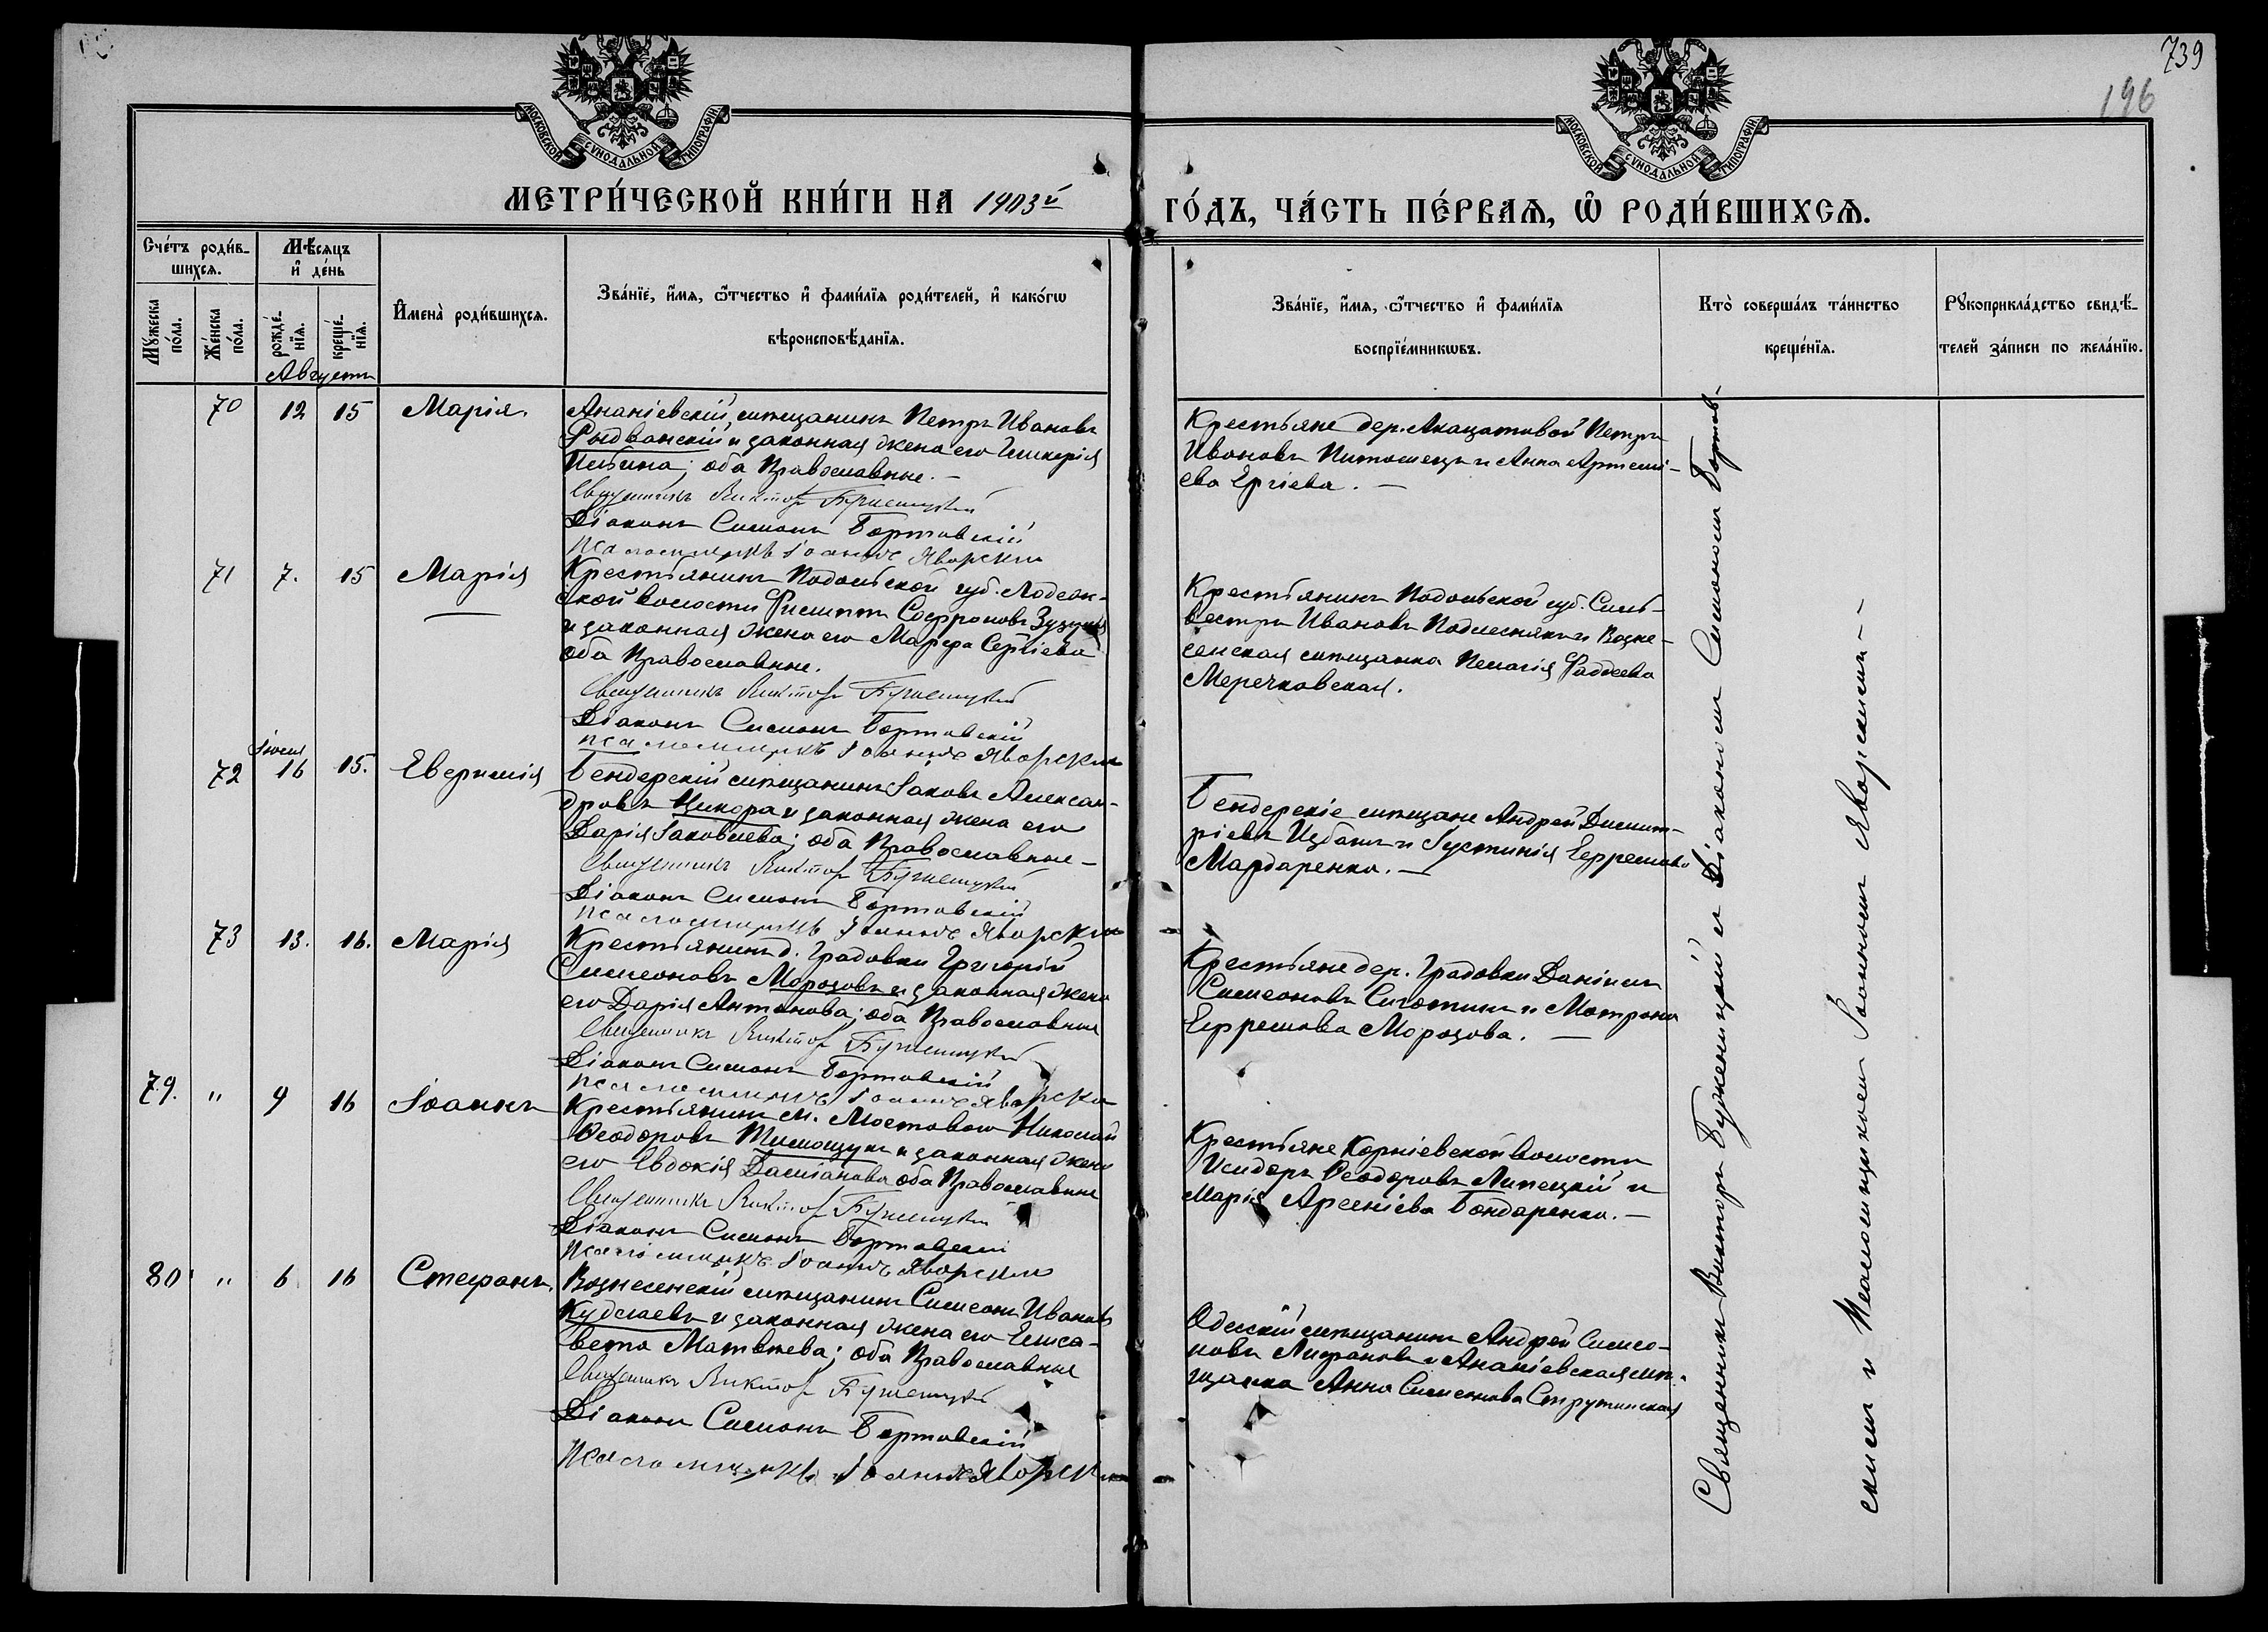 739
196
МОСКОВСКОЙ СѴНОДАЛЬНОЙ ТИПОГРАФІИ.
МОСКОВСКОЙ СѴНОДАЛЬНОЙ ТИПОГРАФІИ.
МЕТРИ́ЧЕСКОЙ КНИ́ГИ НА 1903й
ГО́ДЪ, ЧА́СТЬ ПЕ́РВАѦ, Ѡ҆ РОДИ́ВШИХСѦ.
Сче́тъ роди́в-
шихсѧ.
Мѣ́сѧцъ
и҆ де́нь
Мꙋ́жеска
по́ла.
Же́нска
по́ла.
рожде́-
нїѧ.
креще́-
нїѧ.
И҆мена̀ роди́вшихсѧ.
Зва́нїе, и҆́мѧ, ѻ҆́тчество и҆ фами́лїѧ роди́телей, и҆ како́гѡ
вѣроисповѣ́данїѧ.
Зва́нїе, и҆́мѧ, ѻ҆́тчество и҆ фами́лїѧ
воспрїе́мникѡвъ.
Кто̀ соверша́лъ та́инство
креще́нїѧ.
Рꙋкоприкла́дство свидѣ́-
телей за́писи по жела́нїю.
Августъ
70 12 15 Марія.
Ананіевскій мѣщанинъ Петръ Ивановъ
Рыдванскій и законная жена его Гликерія
оба Православные. -
Священникъ Викторъ Буженицкій
Діаконъ Симонъ Бортовскій
Псаломщикъ Іоаннъ Яворскій
Крестьяне дер. Акацатовой Петръ
Ивановъ и Анна Артемі-
ева Ергіева. -
71 7. 15 Марія
Крестьянинъ Подольской губ.
ской волости Филиппъ Софроновъ
и законная жена его Марфа Сергіева
оба Православные.
Священникъ Викторъ Буженицкій
Діаконъ Симонъ Бортовскій
Псаломщикъ Іоаннъ Яворскій
Крестьянинъ Подольской губ. Силь-
вестръ Ивановъ Подлеснякъ и Возне-
сенская мѣщанка Пелагія Фаддеева
Меречковская.
72 Іюля 16 15. Евфимія
Бендерскій мѣщанинъ Іаковъ Алексан-
дровъ Цикора и законная жена его
Дарія Іаковлева; оба Православные -
Священникъ Викторъ Буженицкій
Діаконъ Симонъ Бортовскій
Псаломщикъ Іоаннъ Яворскій
Бендерскіе мѣщане Андрей Димит-
ріевъ Избанъ и Іустинія Ефремова
Мардаренко. -
73 13. 16. Марія
Крестьянинъ д. Градовки Григорій
Симеоновъ Морозовъ и законная жена
его Дарія Антонова; оба Православные
Священникъ Викторъ Буженицкій
Діаконъ Симонъ Бортовскій
Псаломщикъ Іоаннъ Яворскій
Крестьяне дер. Градовки Даніилъ
Симеоновъ и Матрона
Ефремова Морозова. -
79. " 9 16 Іоаннъ
Крестьянинъ м. Мостового Николай
Ѳеодоровъ Тимощукъ и законная жена
его Евдокія Даміанова оба Православные
Священникъ Викторъ Буженицкій
Діаконъ Симонъ Бортовскій
Псаломщикъ Іоаннъ Яворскій
Крестьяне Корніевской волости
Исидоръ Ѳеодоровъ Липецкій и
Марія Арсеніева Бондаренко. -
80 " 6 16 Стефанъ.
Вознесенскій мѣщанинъ Симеонъ Ивановъ
Кудслаевъ и законная жена его Елиса-
вета Матвѣева; оба Православные
Священникъ Викторъ Буженицкій
Діаконъ Симонъ Бортовскій
Псаломщикъ Іоаннъ Яворскій
Одесскій мѣщанинъ Андрей Симео-
новъ Лифановъ и Ананіевская мѣ-
щанка Анна Симеонова Струтинская
Священникъ Викторъ Буженицкій и Діаконом Симоном Бортов-
ским и Псаломщиком Іоанном Яворским -